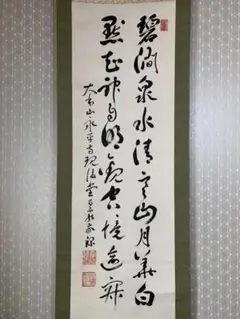 碧澗泉水清寒山月華白
默知神自明觀空境逾寂
大本山永平寺現後堂